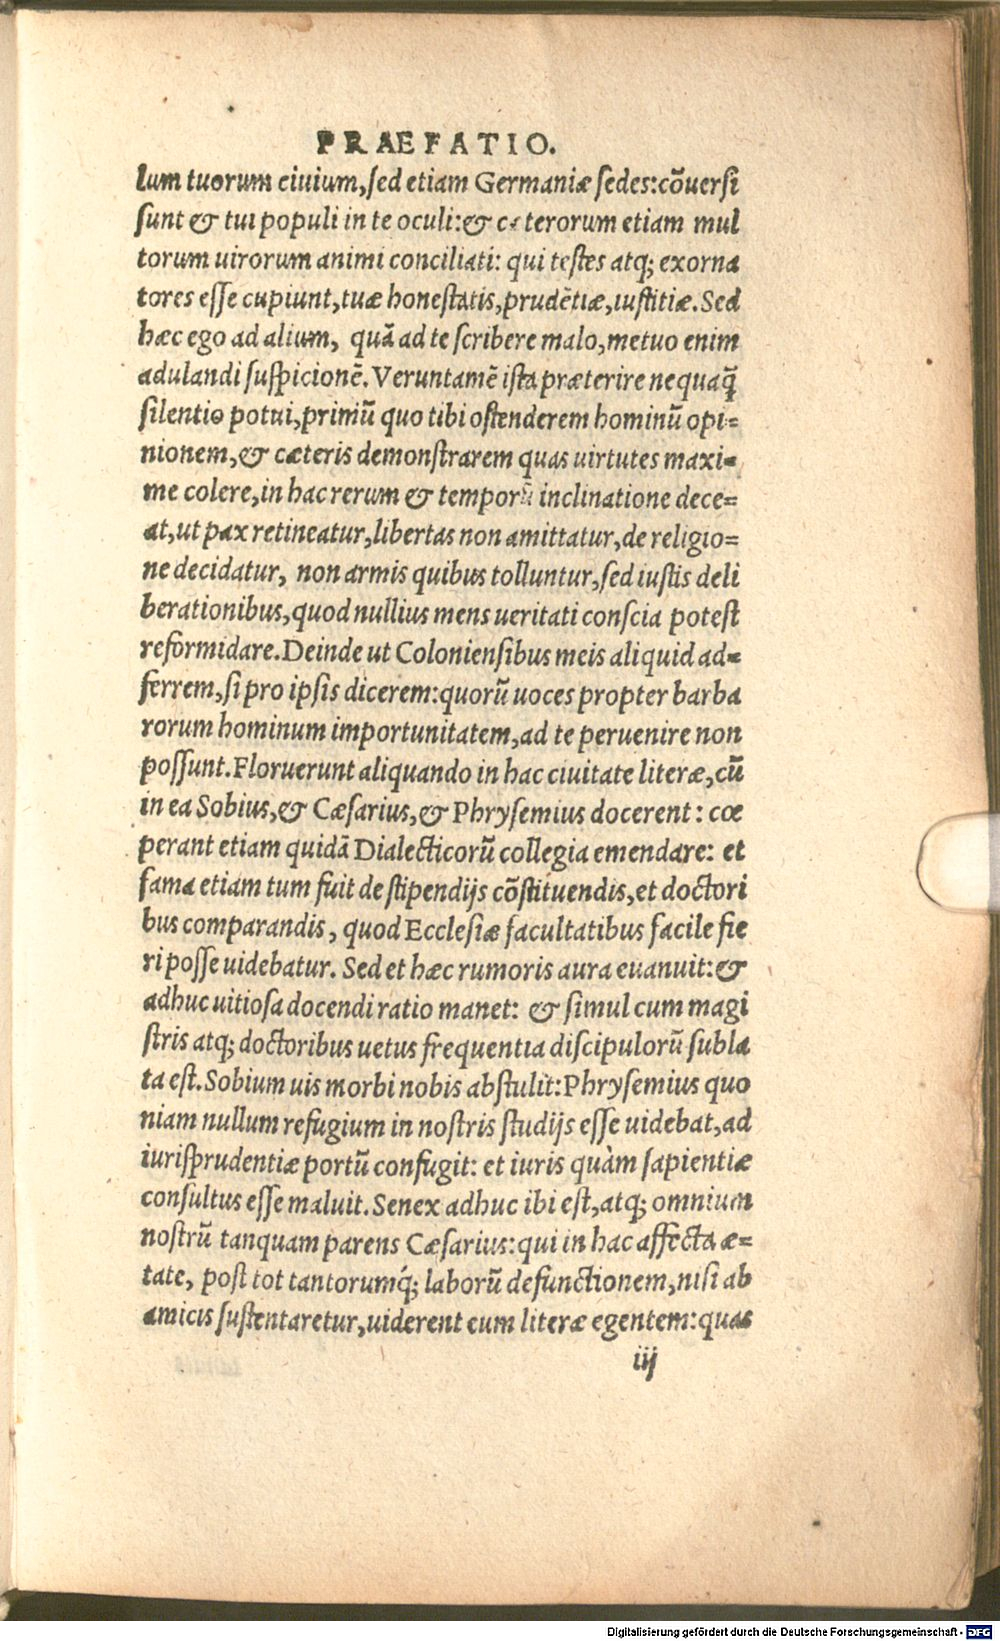 PRAEFATIO.
lum tuorum ciuium, sed etiam Germaniæ sedes: cõuersi
sunt & tui populi in te oculi: & cęterorum etiam mul
torum uirorum animi conciliati: qui testes atq; exorna
tores esse cupiunt, tuæ honestatis, prudẽtiæ, iustitiæ. Sed
hæc ego ad alium, quã ad te scribere malo, metuo enim
adulandi suspicionẽ. Veruntamẽ ista præterire nequaq̃
silentio potui, primũ quo tibi ostenderem hominũ opi=
nionem, & cæteris demonstrarem quas uirtutes maxi=
me colere, in hac rerum & temporũ inclinatione dece=
at, ut pax retineatur, libertas non amittatur, de religio=
ne decidatur, non armis quibus tolluntur, sed iustis deli
berationibus, quod nullius mens ueritati conscia potest
reformidare. Deinde ut Coloniensibus meis aliquid ad=
ferrem, si pro ipsis dicerem: quorũ uoces propter barba
rorum hominum importunitatem, ad te peruenire non
possunt. Floruerunt aliquando in hac ciuitate literæ, cũ
in ea Sobius, & Cæsarius, & Phrysemius docerent: cœ
perant etiam quidã Dialecticorũ collegia emendare: et
fama etiam tum fuit de stipendijs cõstituendis, et doctori
bus comparandis, quod Ecclesiæ facultatibus facile fie
ri posse uidebatur. Sed et hæc rumoris aura euanuit: &
adhuc uitiosa docendi ratio manet: & simul cum magi
stris atq; doctoribus uetus frequentia discipulorũ subla
ta est. Sobium uis morbi nobis abstulit: Phrysemius quo
niam nullum refugium in nostris studijs esse uidebat, ad
iurisprudentiæ portũ confugit: et iuris quàm sapientiæ
consultus esse maluit. Senex adhuc ibi est, atq; omnium
nostrũ tanquam parens Cæsarius: qui in hac affecta æ=
tate, post tot tantorumq́; laborũ defunctionem, nisi ab
amicis sustentaretur, uiderent eum literæ egentem: quas
iij
Digitalisierung gefördert durch die Deutsche Forschungsgemeinschaft - DFG